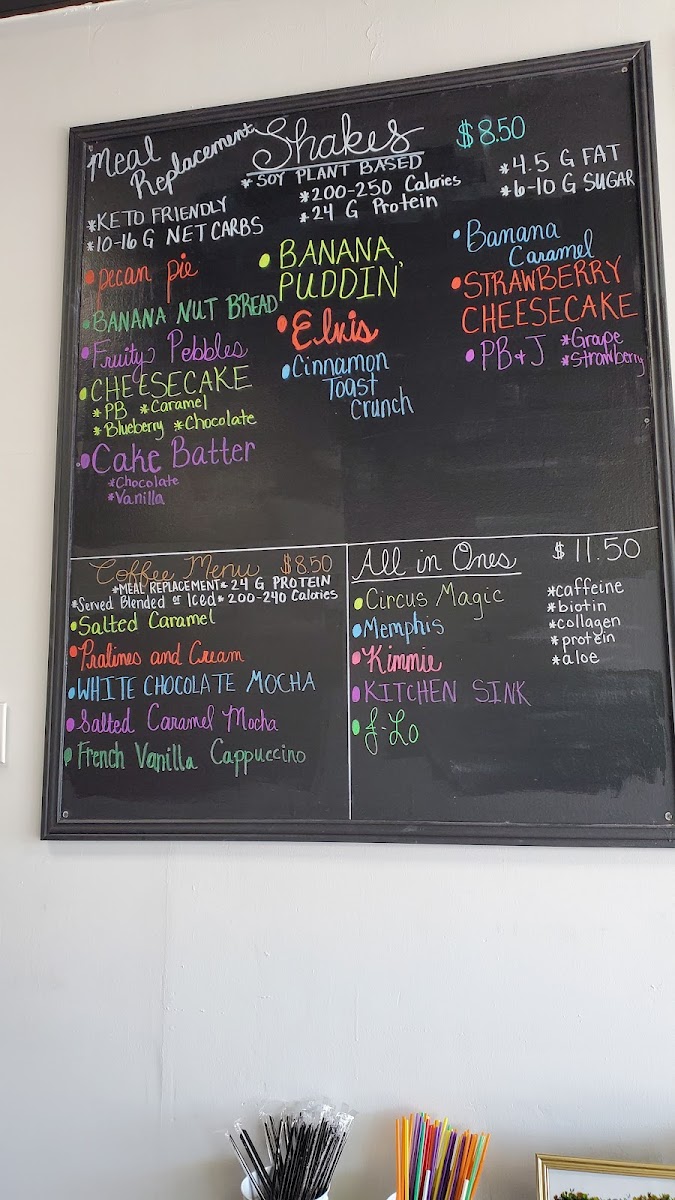 Meal Replacement Shakes $8.50
*SOY PLANT BASED
*KETO FRIENDLY
*10-16 G NET CARBS
*200-250 Calories
*24 G Protein
*4.5 G FAT
*6-10 G SUGAR
•pecan pie
•BANANA NUT BREAD
•Fruity Pebbles
•CHEESECAKE
*PB *Caramel
*Blueberry *Chocolate
•Cake Batter
*Chocolate
*Vanilla
•BANANA
PUDDIN'
•Elvis
•Cinnamon
Toast
Crunch
•Banana
Caramel
•STRAWBERRY
CHEESECAKE
•PB+J *Grape
*Strawberry
Coffee Menu $8.50
*MEAL REPLACEMENT* 24 G PROTEIN
*Served Blended or Iced* 200-240 Calories
•Salted Caramel
•Pralines and Cream
•WHITE CHOCOLATE MOCHA
•Salted Caramel Mocha
•French Vanilla Cappuccino
All in Ones $11.50
•Circus Magic
•Memphis
•Kimmie
•KITCHEN SINK
•J-Lo
*caffeine
*biotin
*collagen
*protein
*aloe